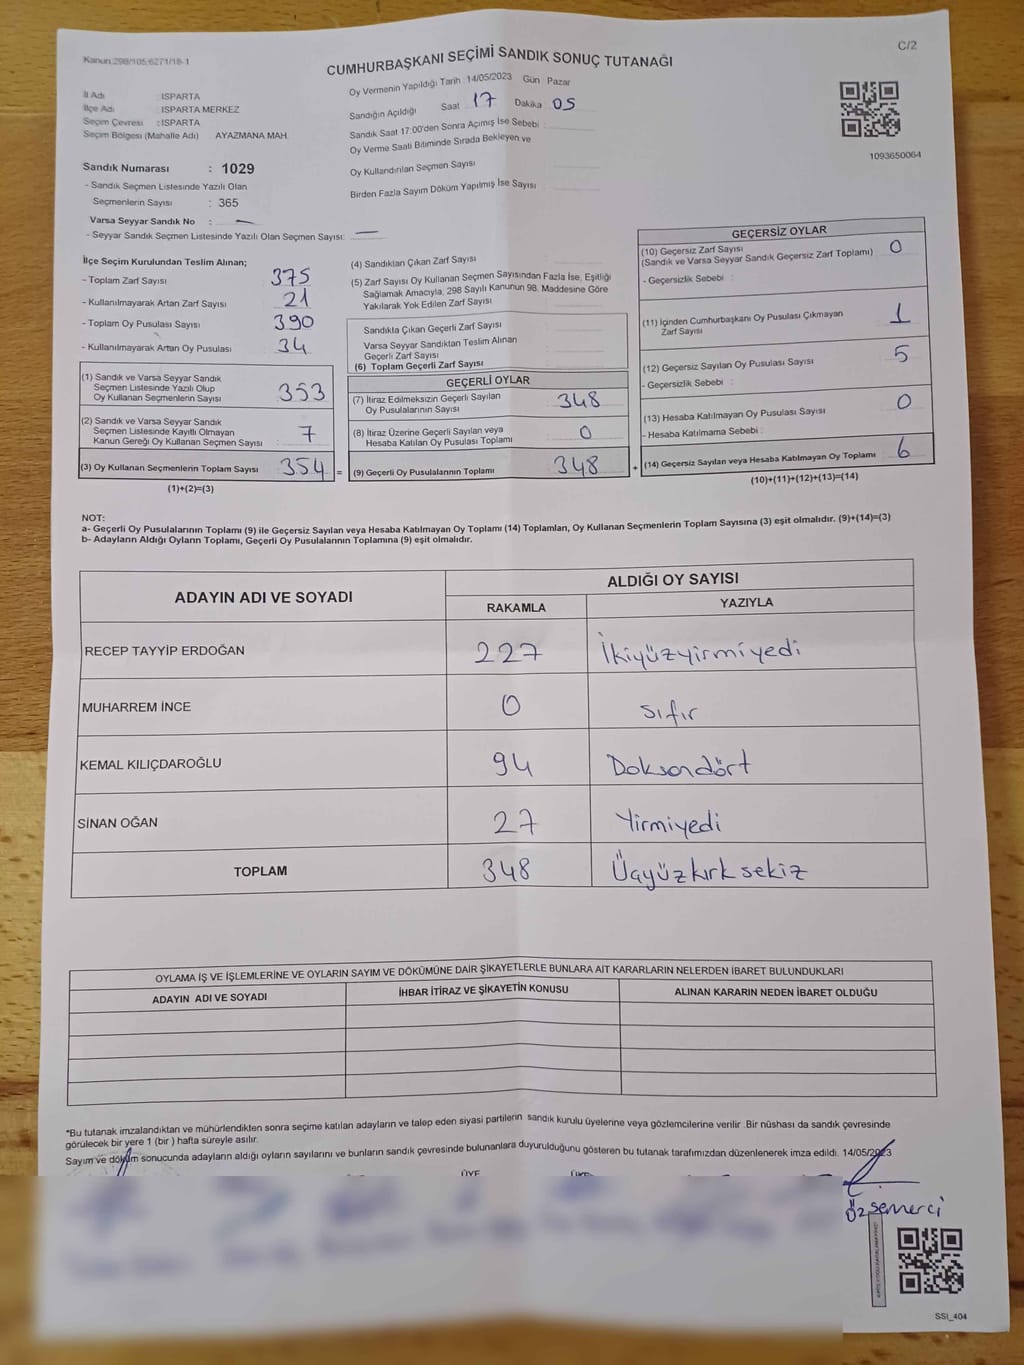 C/2
Kanun:298/105;6271/18-1
CUMHURBAŞKANI SEÇİMİ SANDIK SONUÇ TUTANAĞI
İl Adı : ISPARTA
İlçe Adı : ISPARTA MERKEZ
Seçim Çevresi : ISPARTA
Seçim Bölgesi (Mahalle Adı) AYAZMANA MAH.
Sandık Numarası : 1029
- Sandık Seçmen Listesinde Yazılı Olan
Seçmenlerin Sayısı : 365
Varsa Seyyar Sandık No : —
- Seyyar Sandık Seçmen Listesinde Yazılı Olan Seçmen Sayısı: —
Oy Vermenin Yapıldığı Tarih 14/05/2023 Gün Pazar
Sandığın Açıldığı Saat 17 Dakika 05
Sandık Saat 17:00'den Sonra Açımış İse Sebebi :
Oy Verme Saati Bitiminde Sırada Bekleyen ve
Oy Kullandırılan Seçmen Sayısı
Birden Fazla Sayım Döküm Yapılmış İse Sayısı
1093650064
İlçe Seçim Kurulundan Teslim Alınan;
- Toplam Zarf Sayısı 375
- Kullanılmayarak Artan Zarf Sayısı 21
- Toplam Oy Pusulası Sayısı 390
- Kullanılmayarak Artan Oy Pusulası 34
(1) Sandık ve Varsa Seyyar Sandık
Seçmen Listesinde Yazılı Olup
Oy Kullanan Seçmenlerin Sayısı 353
(2) Sandık ve Varsa Seyyar Sandık
Seçmen Listesinde Kayıtlı Olmayan
Kanun Gereği Oy Kullanan Seçmen Sayısı
(3) Oy Kullanan Seçmenlerin Toplam Sayısı 354 =
(1)+(2)=(3)
(4) Sandıktan Çıkan Zarf Sayısı
(5) Zarf Sayısı Oy Kullanan Seçmen Sayısından Fazla İse, Eşitliği
Sağlamak Amacıyla, 298 Sayılı Kanunun 98. Maddesine Göre
Yakılarak Yok Edilen Zarf Sayısı
Sandıkta Çıkan Geçerli Zarf Sayısı
Varsa Seyyar Sandıktan Teslim Alınan
Geçerli Zarf Sayısı
(6) Toplam Geçerli Zarf Sayısı
GEÇERLİ OYLAR
(7) İtiraz Edilmeksizin Geçerli Sayılan
Oy Pusulalarının Sayısı 348
(8) İtiraz Üzerine Geçerli Sayılan veya
Hesaba Katılan Oy Pusulası Toplamı 0
(9) Geçerli Oy Pusulalarının Toplamı 348 +
GEÇERSİZ OYLAR
(10) Geçersiz Zarf Sayısı
(Sandık ve Varsa Seyyar Sandık Geçersiz Zarf Toplamı) 0
- Geçersizlik Sebebi :
(11) İçinden Cumhurbaşkanı Oy Pusulası Çıkmayan
Zarf Sayısı 1
(12) Geçersiz Sayılan Oy Pusulası Sayısı 5
- Geçersizlik Sebebi :
(13) Hesaba Katılmayan Oy Pusulası Sayısı 0
- Hesaba Katılmama Sebebi :
(14) Geçersiz Sayılan veya Hesaba Katılmayan Oy Toplamı 6
(10)+(11)+(12)+(13)=(14)
NOT:
a- Geçerli Oy Pusulalarının Toplamı (9) ile Geçersiz Sayılan veya Hesaba Katılmayan Oy Toplamı (14) Toplamları, Oy Kullanan Seçmenlerin Toplam Sayısına (3) eşit olmalıdır. (9)+(14)=(3)
b- Adayların Aldığı Oyların Toplamı, Geçerli Oy Pusulalarının Toplamına (9) eşit olmalıdır.
ADAYIN ADI VE SOYADI
ALDIĞI OY SAYISI
RAKAMLA YAZIYLA
RECEP TAYYİP ERDOĞAN 227 İkiyüzyirmiyedi
MUHARREM İNCE 0 sıfır
KEMAL KILIÇDAROĞLU 94 Doksandört
SİNAN OĞAN 27 Yirmiyedi
TOPLAM 348 Üçyüzkırksekiz
OYLAMA İŞ VE İŞLEMLERİNE VE OYLARIN SAYIM VE DÖKÜMÜNE DAİR ŞİKAYETLERLE BUNLARA AİT KARARLARIN NELERDEN İBARET BULUNDUKLARI
ADAYIN ADI VE SOYADI İHBAR İTİRAZ VE ŞİKAYETİN KONUSU ALINAN KARARIN NEDEN İBARET OLDUĞU
*Bu tutanak imzalandıktan ve mühürlendikten sonra seçime katılan adayların ve talep eden siyasi partilerin sandık kurulu üyelerine veya gözlemcilerine verilir .Bir nüshası da sandık çevresinde
görülecek bir yere 1 (bir ) hafta süreyle asılır.
Sayım ve döküm sonucunda adayların aldığı oyların sayılarını ve bunların sandık çevresinde bulunanlara duyurulduğunu gösteren bu tutanak tarafımızdan düzenlenerek imza edildi. 14/05/2023
ÜYE ÜYE
Özsemerci
SSI_404